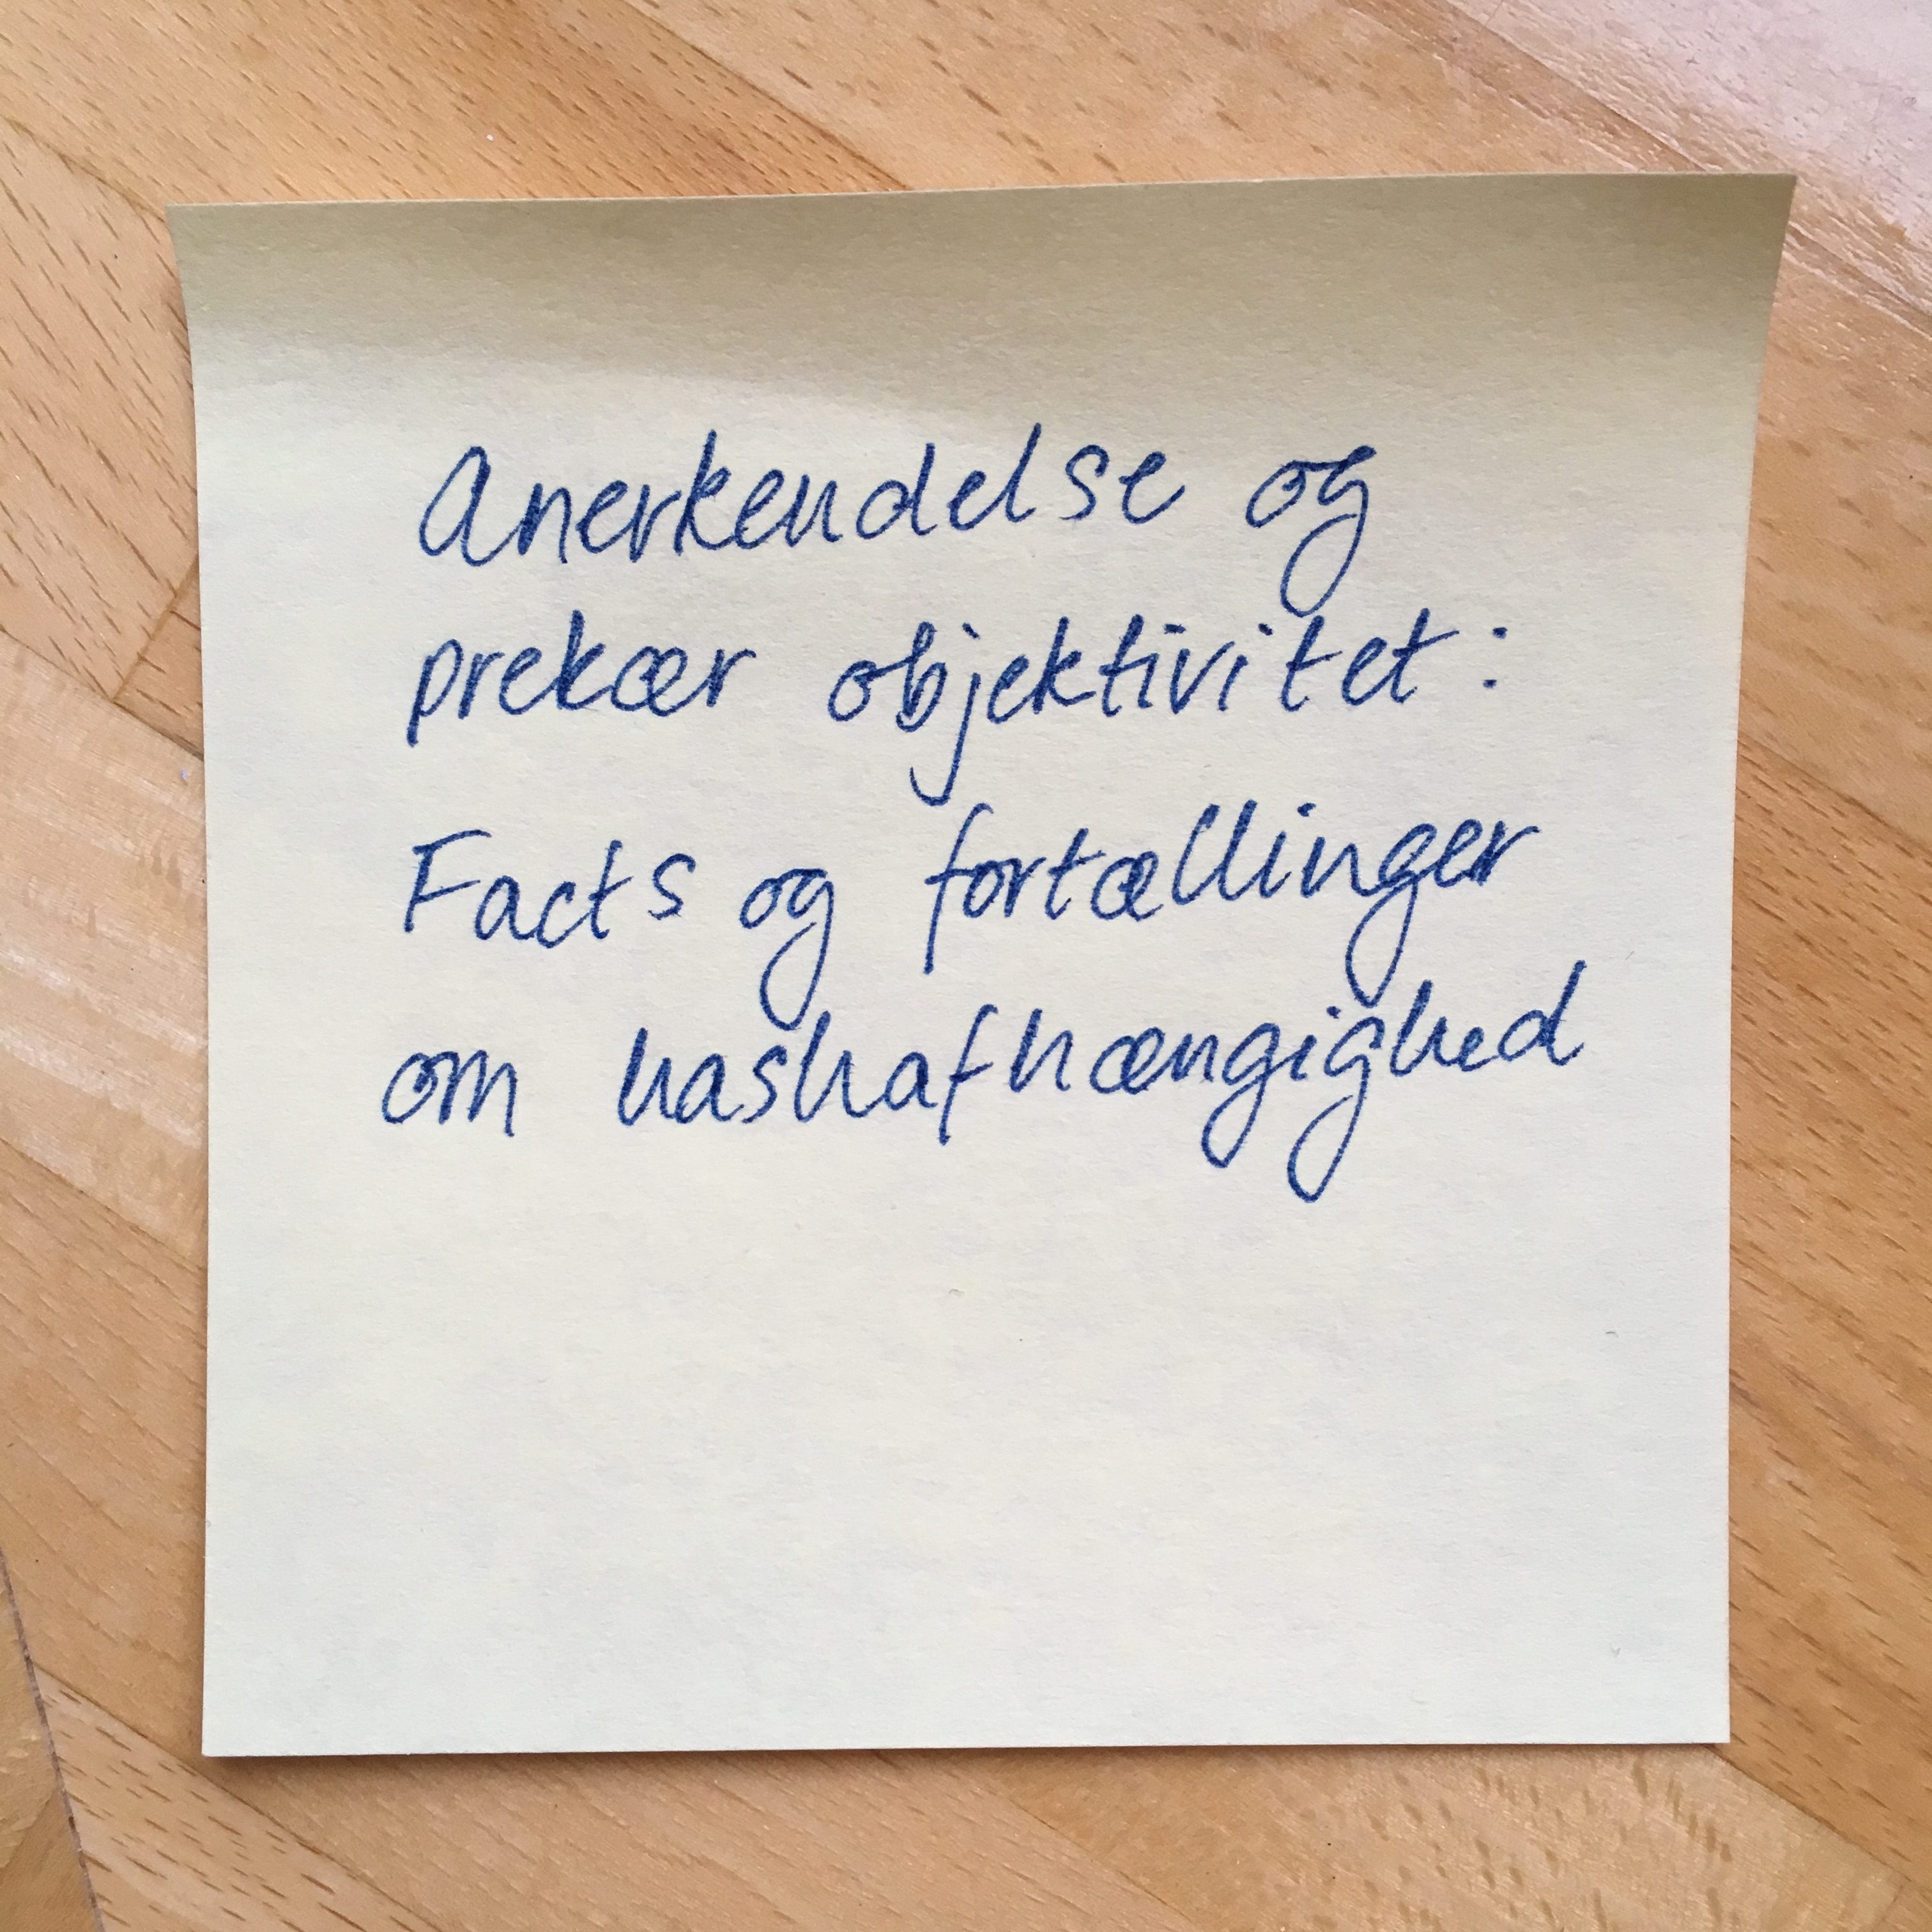 Anerkendelse og
prekær objektivitet:
Facts og fortællinger
om hashafhængighed